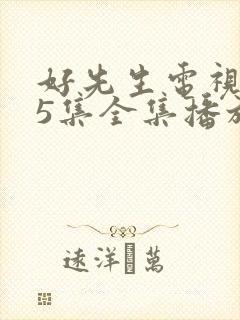 好先生電視
5集全集播放
遠洋 萬